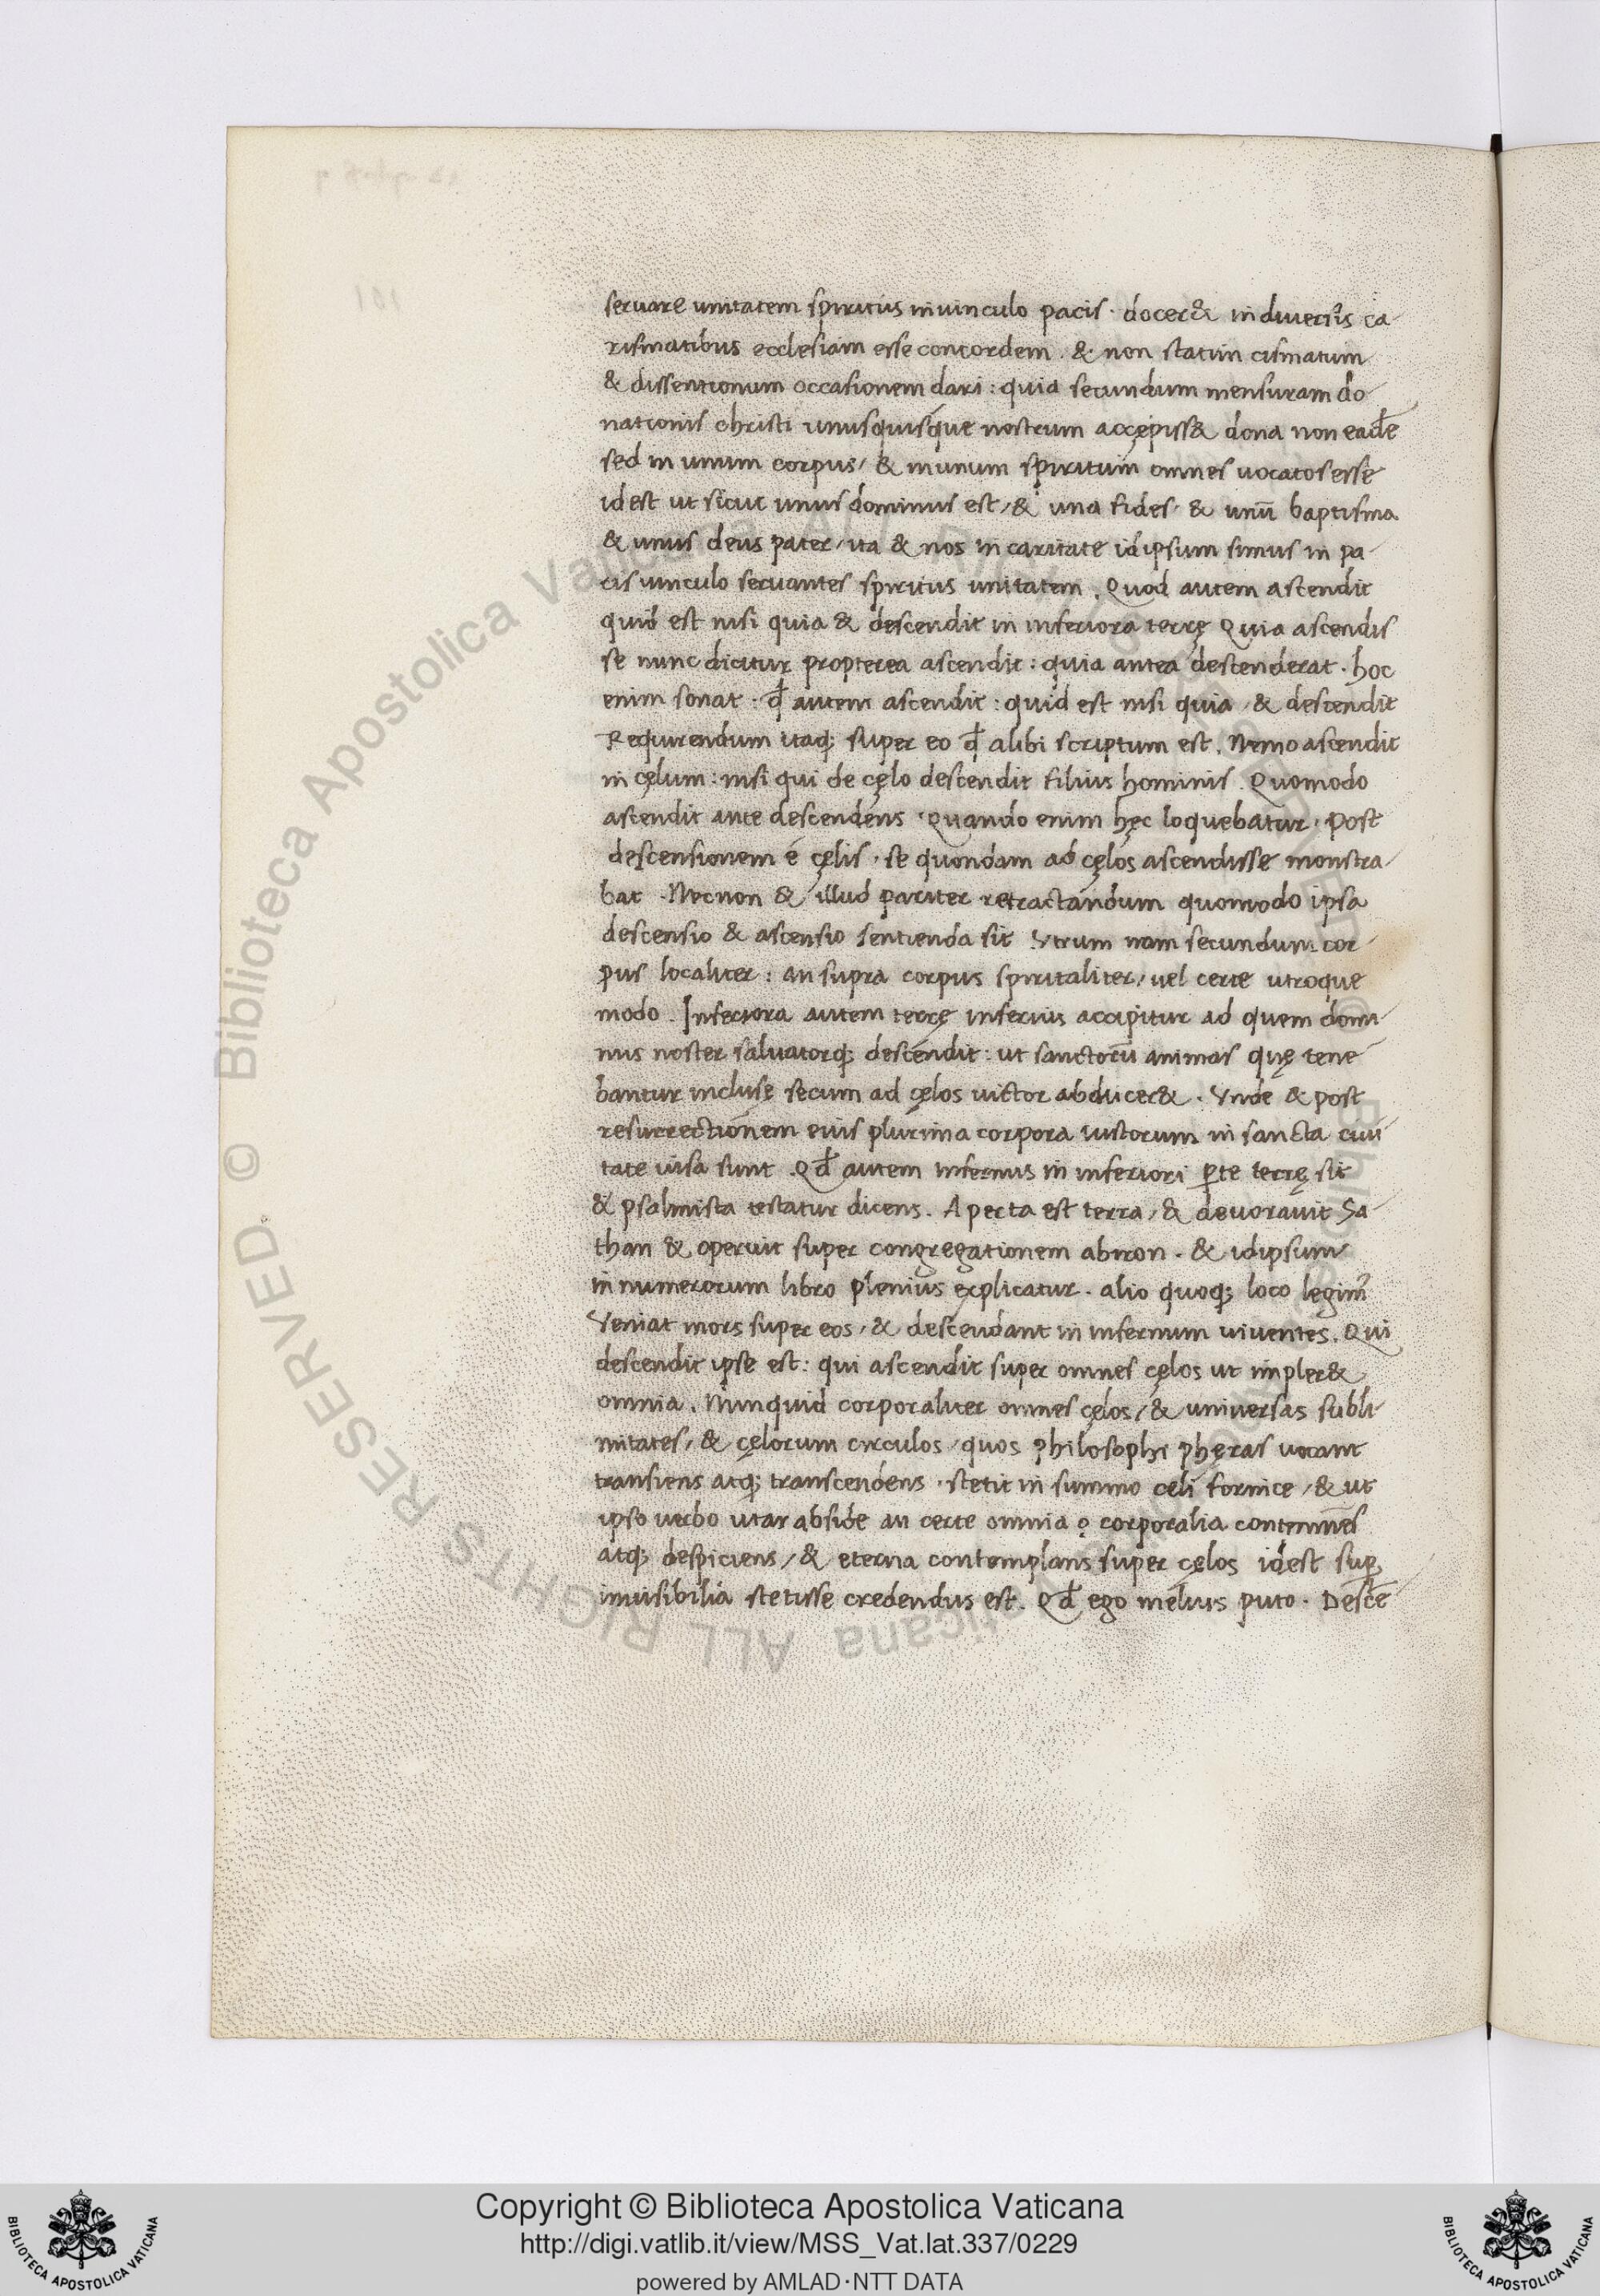 seruare unitatem spiritus inuinculo pacis · docer& in diuersis ca-
rismatibus ecclesiam esse concordem . & non statim cismatum
& dissentionum occasionem dari : quia secundum mensuram do-
nationis christi unusquisque nostrum accępiss& dona non eadē
sed in unum corpus / & inunum spiritum omnes uocatos esse
idest ut sicut unus dominus est / & una fides · & unū baptisma
& unus deus pater / ita & nos in caritate idipsum simus in pa-
cis uinculo seruantes spiritus unitatem . Quod autem ascendit
quid est nisi quia & descendit in inferiora terrę Quia ascendis
se nunc dicitur propterea ascendit : quia antea descenderat . hoc
enim sonat : qđ autem ascendit : quid est nisi quia / & descendit
Requirendum itaq; super eo qđ alibi scriptum est . Nemo ascendit
in cęlum : nisi qui de cęlo descendit filius hominis . Quomodo
ascendit ante descendens · Quando enim hęc loquebatur · post
descensionem é cęlis · se quondam ad cęlos ascendisse monstra-
bat · Necnon & illud pariter retractandum quomodo ipsa
descensio & ascensio sentienda sit Vtrum nam secundum cor-
pus localiter : an supra corpus spiritaliter / uel certe utroque
modo . Inferiora autem terrę infernus accipitur ad quem domi-
nus noster saluatorq; descendit : ut sanctorū animas quę tene-
bantur incluse secum ad cęlos uictor abducer& . Vnde & post
resurrectionem eius plurima corpora iustorum in sancta ciui
tate uisa sunt . Qđ autem infernus in inferiori ꝑte terrę sit
& psalmista testatur dicens . Aperta est terra / & deuorauit Sa-
than & operuit super congregationem abiron . & idipsum
in numerorum libro plenius explicatur . alio quoq; loco legim᾽
Veniat mors super eos / & descendant in infernum uiuentes . Qui
descendit ipse est : qui ascendit super omnes cęlos ut impler&
omnia . Nunquid corporaliter omnes cęlos / & universas subli-
mitates / & cęlorum circulos / quos philosophi phęras uocant
transiens atq; transcendens · stetit in summo celi fornice / & ut
ipso uerbo utar abside an certe omnia corporalia contemnēs
atq; despiciens / & eterna contemplans super cęlos idest suꝑ
inuisibilia stetisse credendus est . Qđ ego melius puto . Descē-
Copyright © Biblioteca Apostolica Vaticana
http://digi.vatlib.it/view/MSS_Vat.lat.337/0229
powered by AMLAD·NTT DATA
BIBLIOTECA APOSTOLICA VATICANA
BIBLIOTECA APOSTOLICA VATICANA
© Biblioteca Apostolica Vaticana ALL RIGHTS RESERVED
© Biblioteca Apostolica Vaticana ALL RIGHTS RESERVED